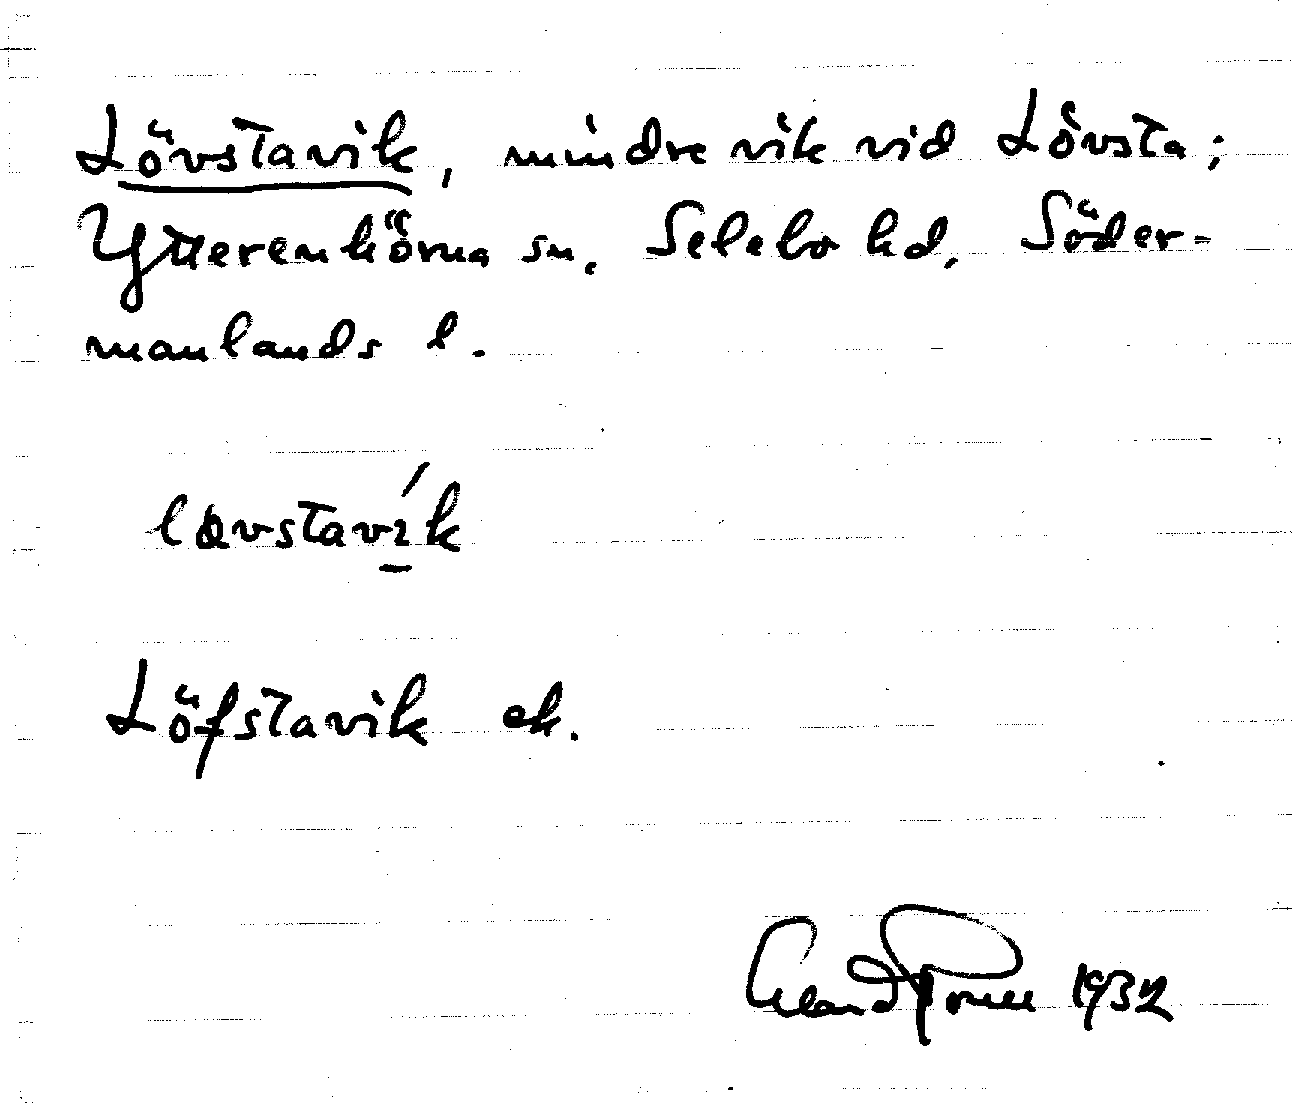 Lövstavik, mindre vik vid Lövsta;
Ytterenhörna sn. Selebo hd, Söder-
manlands l.
Löfstavik ek.
1932